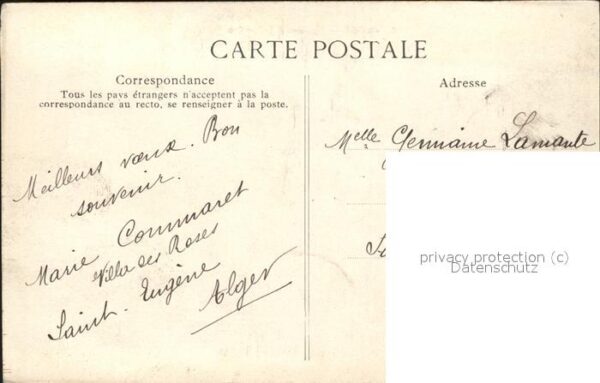 CARTE POSTALE
Correspondance
Tous les pays étrangers n'acceptent pas la
correspondance au recto, se renseigner à la poste.
Meilleurs vœux. Bon
souvenir.
Marie Commaret
Villa des Roses
Saint-Eugène
Alger
Adresse
Melle Germaine Lamante
privacy protection (c)
Datenschutz